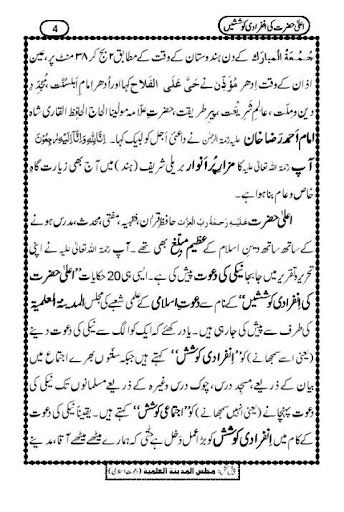 اعلیٰ حضرت کی انفرادی کوششیں
4
جُمُعَۃُ الْمبارَک کے دن ہندوستان کے وقت کے مطابق ۲ بج کر ۳۸ مِنَٹ پر، عین
اذان کے وقت اِدھر مُؤَذِّن نے حَیَّ عَلَی الْفَلَاح کہا اور اُدھر امامِ اَہلسنّت، مُجَدِّدِ
دین و ملّت، عالمِ شَرِیْعَت، پیرِ طریقت، حضرتِ علّامہ مولٰینا الحاج الحافظ القاری شاہ
امام اَحمد رَضا خان علیہ رحمۃ الرحمٰن نے داعئ اَجل کو لبیک کہا۔ اِنَّا لِلّٰهِ وَاِنَّاۤ اِلَیْهِ رٰجِعُوْنَ
آپ رحمۃ اللہ تعالیٰ علیہ کا مزارِ پُر اَنوار بریلی شریف (ہند) میں آج بھی زیارت گاہِ
خاص و عام بنا ہوا ہے۔
اعلیٰ حضرت علیہ رحمۃ ربّ العزت حافظِ قراٰن، فقیہہ، مفتی، محدث، مدرس ہونے
کے ساتھ ساتھ دینِ اسلام کے عظیم مبلِّغ بھی تھے۔ آپ رحمۃ اللہ تعالیٰ علیہ نے اپنی
تحریر و تقریر میں جا بجا نیکی کی دعوت پیش کی ہے۔ ایسی ہی 20 حکایات ’’اعلیٰ حضرت
کی اِنفرادی کوششیں‘‘ کے نام سے دعوتِ اِسلامی کے علمی شعبے کی مجلس المدینۃ العلمیۃ
کی طرف سے پیش کی جا رہی ہیں۔ یاد رکھئے کہ ایک کو الگ سے نیکی کی دعوت دینے
(یعنی اسے سمجھانے) کو ’’اِنفرادی کوشش‘‘ کہتے ہیں جبکہ سنّتوں بھرے اجتماع میں
بیان کے ذریعے، مسجد درس، چوک درس وغیرہ کے ذریعے مسلمانوں تک نیکی کی
دعوت پہنچانے (یعنی انہیں سمجھانے) کو ’’اجتماعی کوشش‘‘ کہتے ہیں۔ یقیناً نیکی کی دعوت
کے کام میں اِنفرادی کوشش کو بڑا عمل دخل ہے حتّٰی کہ ہمارے میٹھے میٹھے آقا، مدینے
پیش کش: مجلس المدینۃ العلمیۃ (دعوتِ اسلامی)